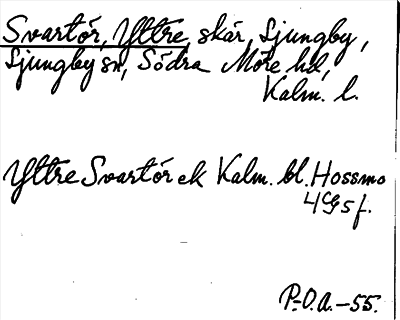 Svartör, Yttre, skär, Ljungby,
Ljungby sn, Södra Möre hd,
Kalm. l.
Yttre Svartör ek Kalm. bl. Hossmo
4G5f.
P.O.A.-55.